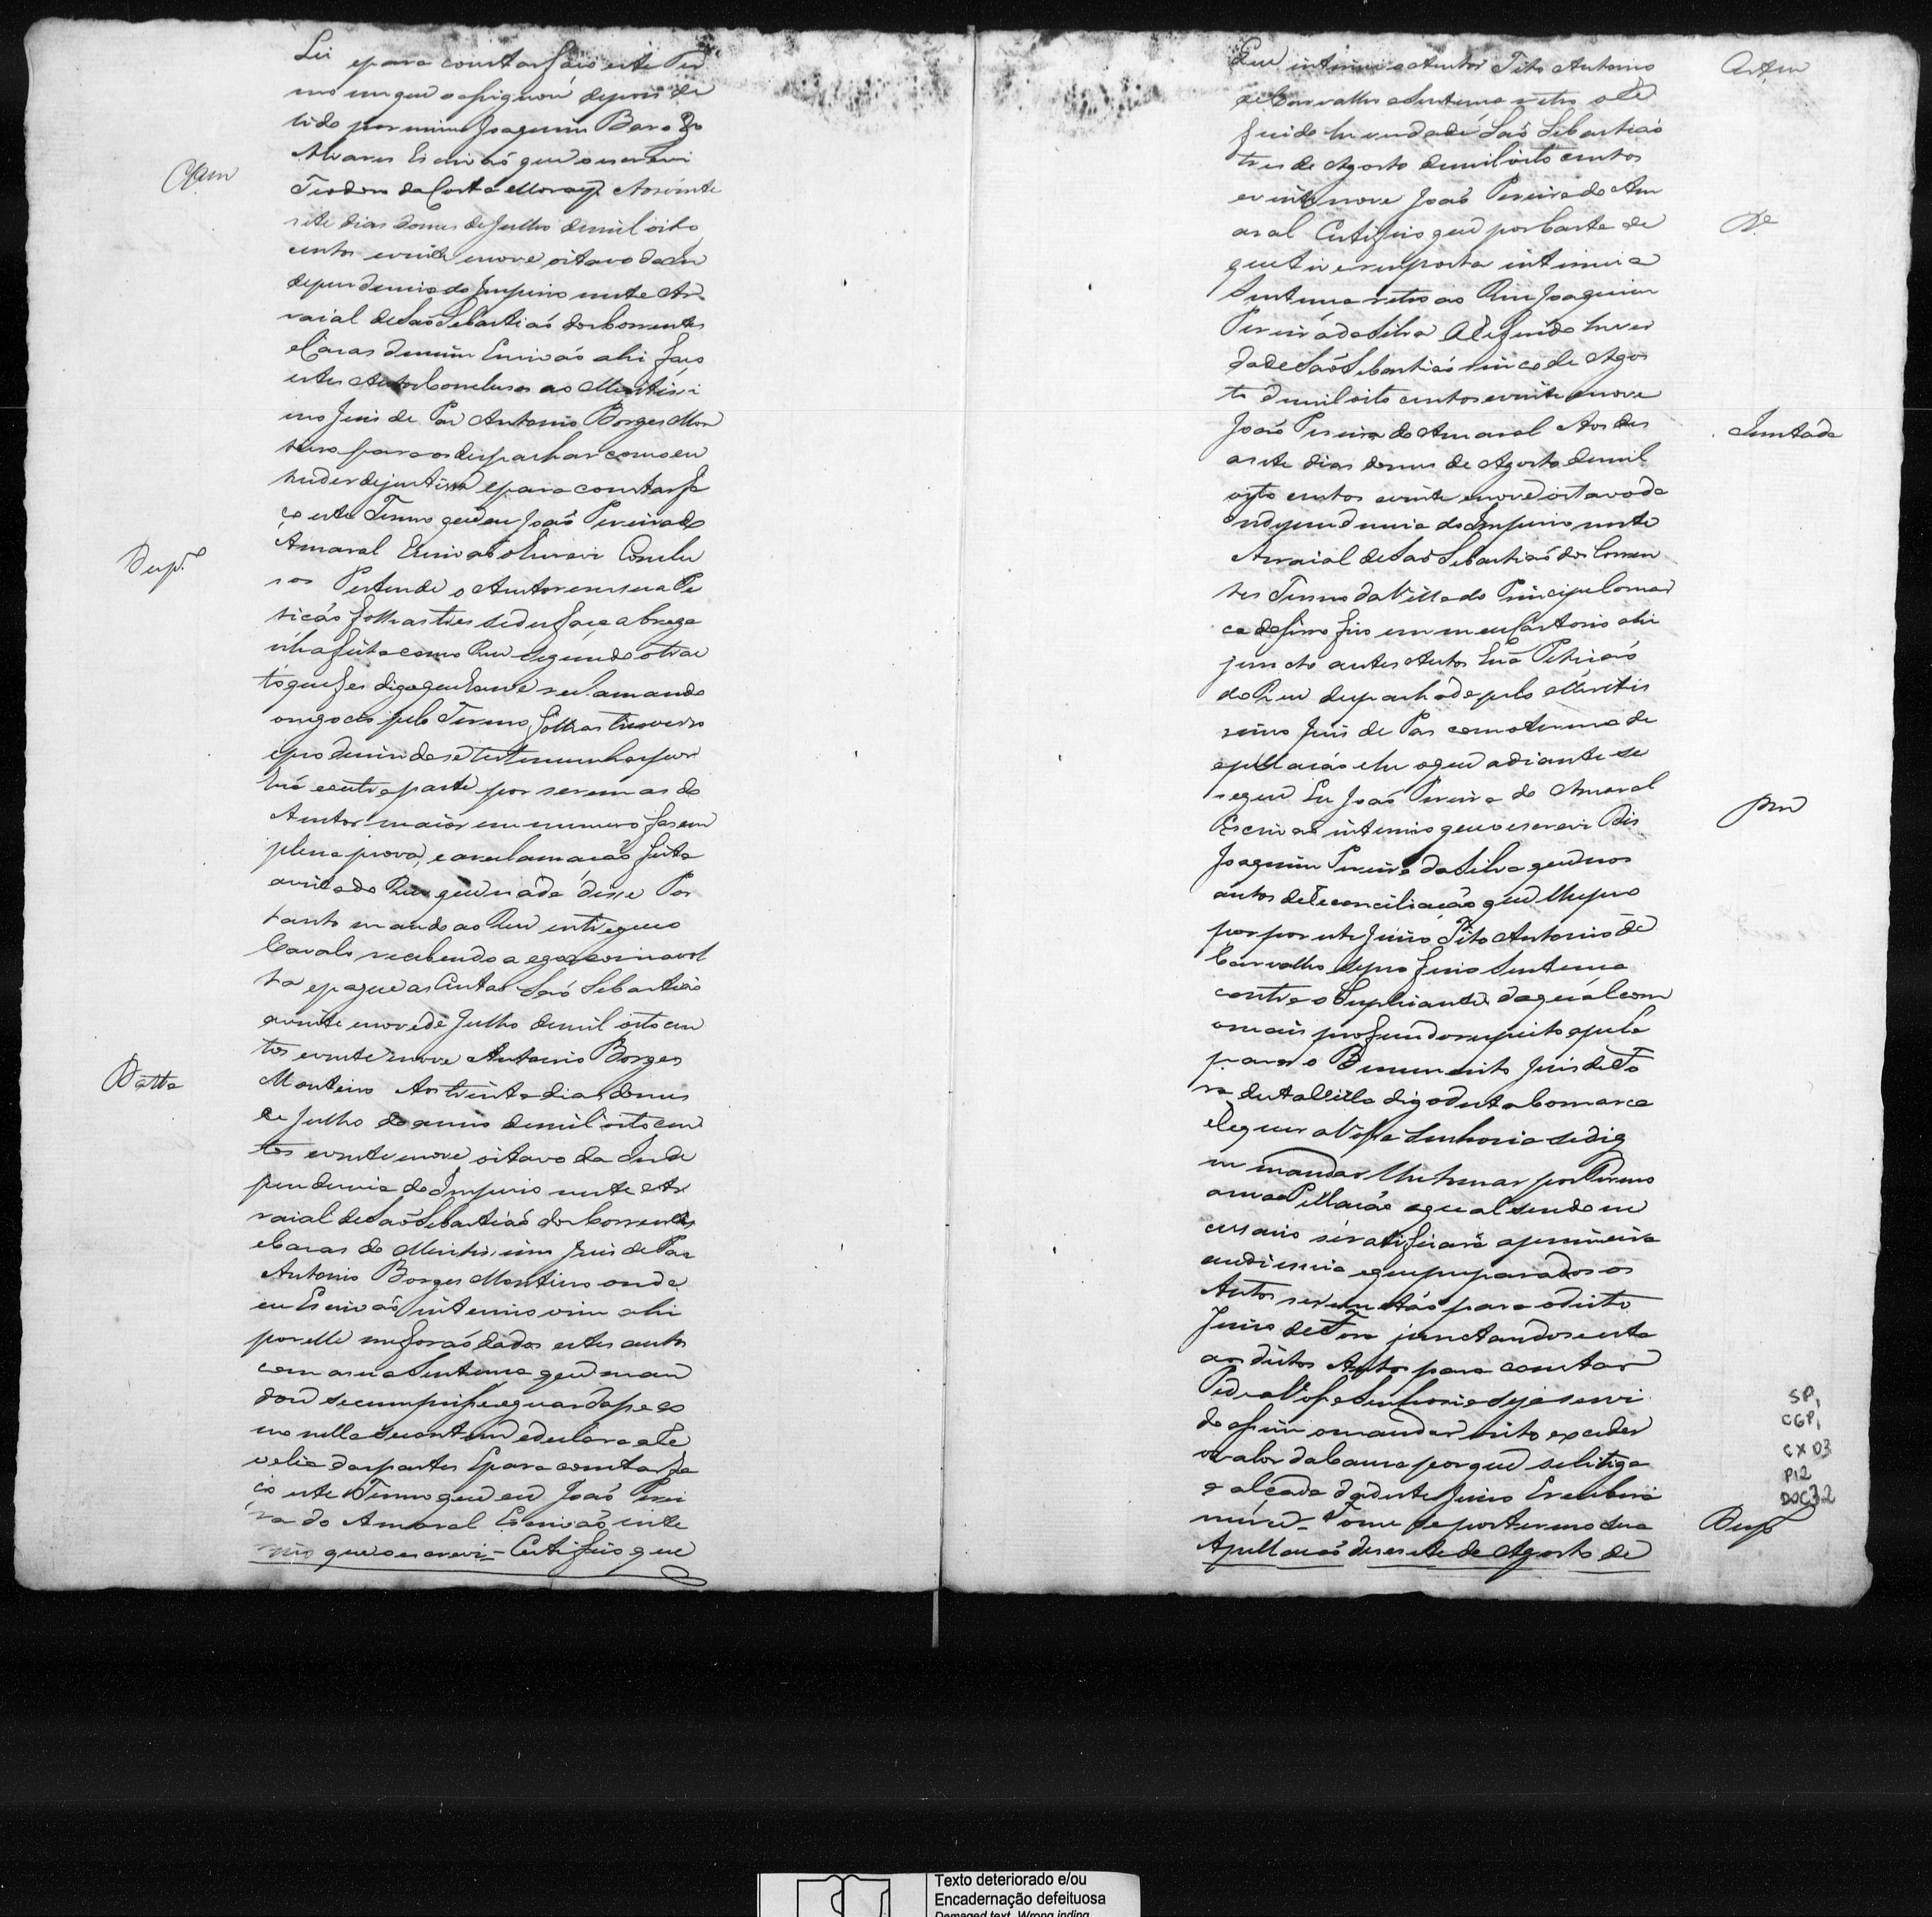 Lei epara constar faço este Ter
mo em que assignou depois de
lido por mim Joaquim
Alvares Escrivaó que o escrevi
Clam
Teodoro da Costa Moraes Aos vinte
sete dias domes de Julho demil oito
centos evinte enove oitavo da In
dependencia do Imperio neste Ar
raial de Saó Sebastiaó dos Correntes
eCazas demim Escrivaó ahi faço
estes Autos Concluzos ao Meritissi
mo Juis de Pas Antonio Borges Mon
teiro para os despachar como en
tender dejustissa epara constar fa
ço este Termo que eu Joaó Pereira do
Amaral Escrivaó oEscrevi Conclu
Desp.º
sos Pertende o Autor em sua Pe
ticaó folhas tres se desfaça a brega
nha feita com o Reu segundo o trac
to que fes digo que houve reclamando
onegocio pelo Termo folhas tres verso
eproduzindose testemunhas por
húa e outra parte por serem as do
Autor maior em numero fasem
plena prova, e areclamacaó feita
avista do Reu que nada disse Por
tanto mando ao Reu entregue o
Cavalo recebendo a egoa com a vol
ta epague as Custas Saó Sebastiaó
avinte enove de Julho demil oito cen
tos evinte enove Antonio Borges
Datta
Monteiro Aos trinta dias domes
de Julho do anno demil oito cen
tos evinte enove oitavo da Inde
pendencia do Imperio neste Ar
raial de Saó Sebastiaó dos Correntes
eCazas do Meritissimo Juis de Pas
Antonio Borges Monteiro onde
eu Escrivaó interino vim ahi
por elle me foraó dados estes autos
com a sua Sentença que man
dou se cumprisse eguardasse co
mo nella se contem edeclara aRe
velia das partes Epara constar fa
ço este Termo que eu Joaó Perei
ra do Amaral Escrivaó inte
rino que o escrevi = Certifico que
Eu intimei o Autor Tito Antonio
de Carvalho aSentença retro oRe
ferido he verdade Saó Sebastiaó
tres de Agosto demil oito centos
evinte nove Joaó Pereira do Am
D.ª
aral Certifico que por Carta de
que tive resposta intimei a
Sentença retro ao Reu Joaquim
Pereira da Silva O Referido he ver
dade Saó Sebastiaó sinco de Agos
to demil oito centos evinte enove
Juntada
Joaó Pereira do Amaral Aos des
asete dias domes de Agosto demil
oito centos evinte enove oitavo da
Independencia do Imperio neste
Arraial de Saó Sebastiaó dos Corren
tes Termo da Villa do Principe Comar
ca do Serro frio em meu Cartorio ahi
juncto a estes Autos húa Peticaó
do Reu despachada pelo Meritis
simo Juis de Pas com o termo de
apellacaó ehe oque adiante se
segue Eu Joaó Pereira do Amaral
Escrivaó interino que o escrevi Dis
Joaquim Pereira da Silva que nos
autos de Reconciliaçaó que lhe pro
por por este Juizo Tito Antonio de
Carvalho se proferio Sentença
contra o Supliante da qual com
omais profundo respeito apela
para o Benemerito Juis de Fo
ra desta Villa digo desta Comarca
eRequer a Vossa Senhoria se dig
ne mandar lhe tomar por Termo
a sua Pellacaó a qual sendo ne
cessario se ratificará a primeira
audiencia e que preparados os
Autos se remetaó para o dito
Juizo de Fora junctandose esta
aos ditos Autos para constar
Pede a Vossa Senhoria seja servi
do assim o mandar visto exceder
o valor da Cauza por que se litiga
a alçada deste Juizo E recebera
mercê = Tome se por termo sua
Desp.º
Apellacaó desasete de Agosto de
SP,
CGP,
CX 03
P12
DOC32
Texto deteriorado e/ou
Encadernação defeituosa
Damaged text. Wrong inding